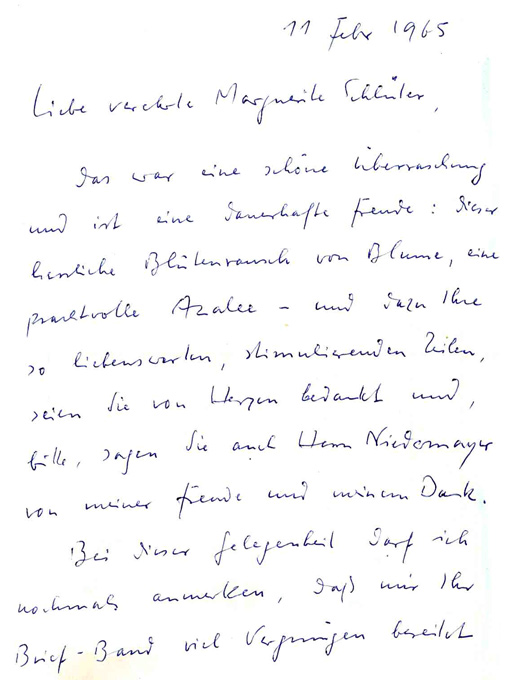 11 Febr 1965
Liebe verehrte Marguerite Schlüter,
das war eine schöne Überraschung
und ist eine dauerhafte Freude: dieser
herrliche Blütenrausch von Blume, eine
prachtvolle Azalee – und dazu Ihre
so liebenswerten, stimulierenden Zeilen,
seien Sie von Herzen bedankt und,
bitte, sagen Sie auch Herrn Niedermayer
von meiner Freude und meinem Dank.
Bei dieser Gelegenheit darf ich
nochmals anmerken, daß mir Ihr
Brief-Band viel Vergnügen bereitet